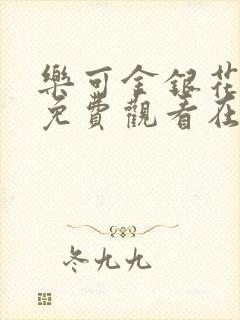 樂可金銀花
免費觀看在
冬九九